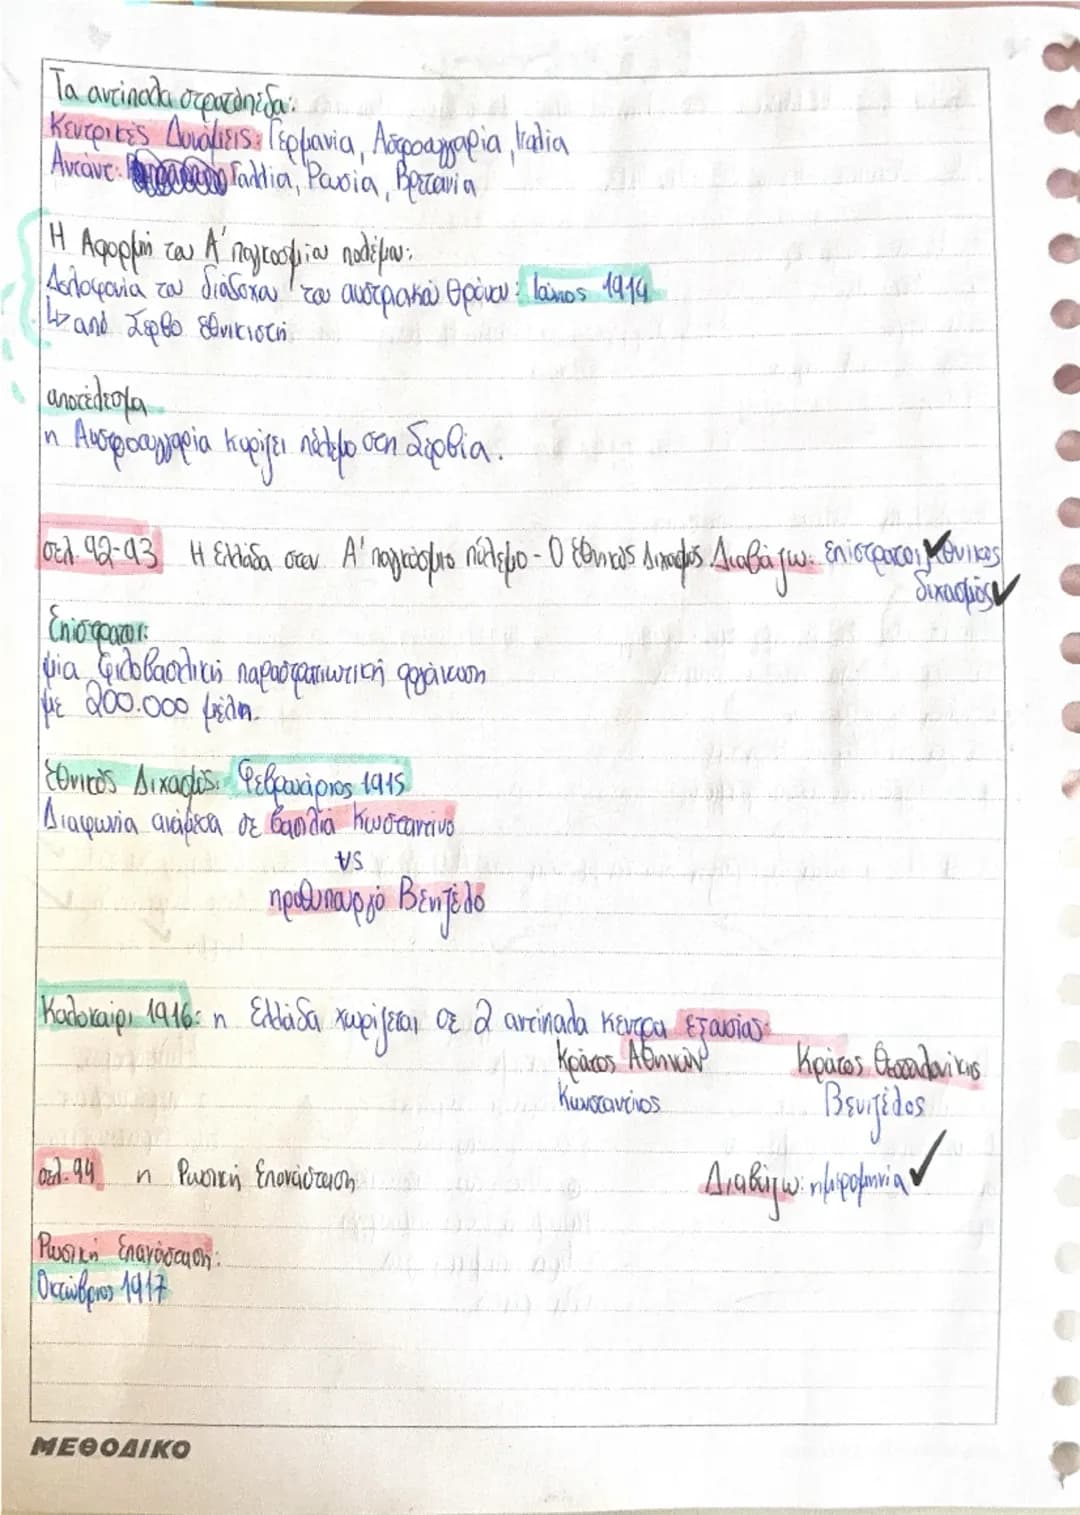 Τα αντίπαλα στρατόπεδα:
Κεντρικές Δυνάμεις: Γερμανία, Αυστροουγγαρία, Ιταλία
Αντάντ: Γαλλία, Ρωσία, Βρετανία
Η Αφορμή του Α' παγκοσμίου πολέμου:
Δολοφονία του διάδοχου του αυστριακού θρόνου: Ιούνιος 1914
↳ από Σέρβο εθνικιστή
αποτέλεσμα
η Αυστροουγγαρία κηρύζει πόλεμο στη Σερβία.
σελ. 92-93 Η Ελλάδα στον Α' παγκόσμιο πόλεμο - Ο εθνικός Διχασμός Διαβάζω: επίστρατοι ✓ εθνικος
διχασμός ✓
Επίστρατοι:
μία φιλοβασιλική παραστρατιωτική οργάνωση
με 200.000 μέλη.
Εθνικός Διχασμός: Φεβρουάριος 1915
Διαφωνία ανάμεσα σε βασιλιά Κωσταντίνο
vs
πρωθυπουργό Βενιζέλο
Καλοκαίρι 1916: η Ελλάδα χωρίζεται σε 2 αντίπαλα κέντρα εξουσίας:
Κράτος Αθηνών Κράτος Θεσσαλονίκης
Κωνσταντίνος Βενιζέλος
σελ. 94 η Ρωσική Επανάσταση Διαβάζω: ημερομηνία ✓
Ρωσική Επανάσταση:
Οκτώβριος 1917
ΜΕΘΟΔΙΚΟ